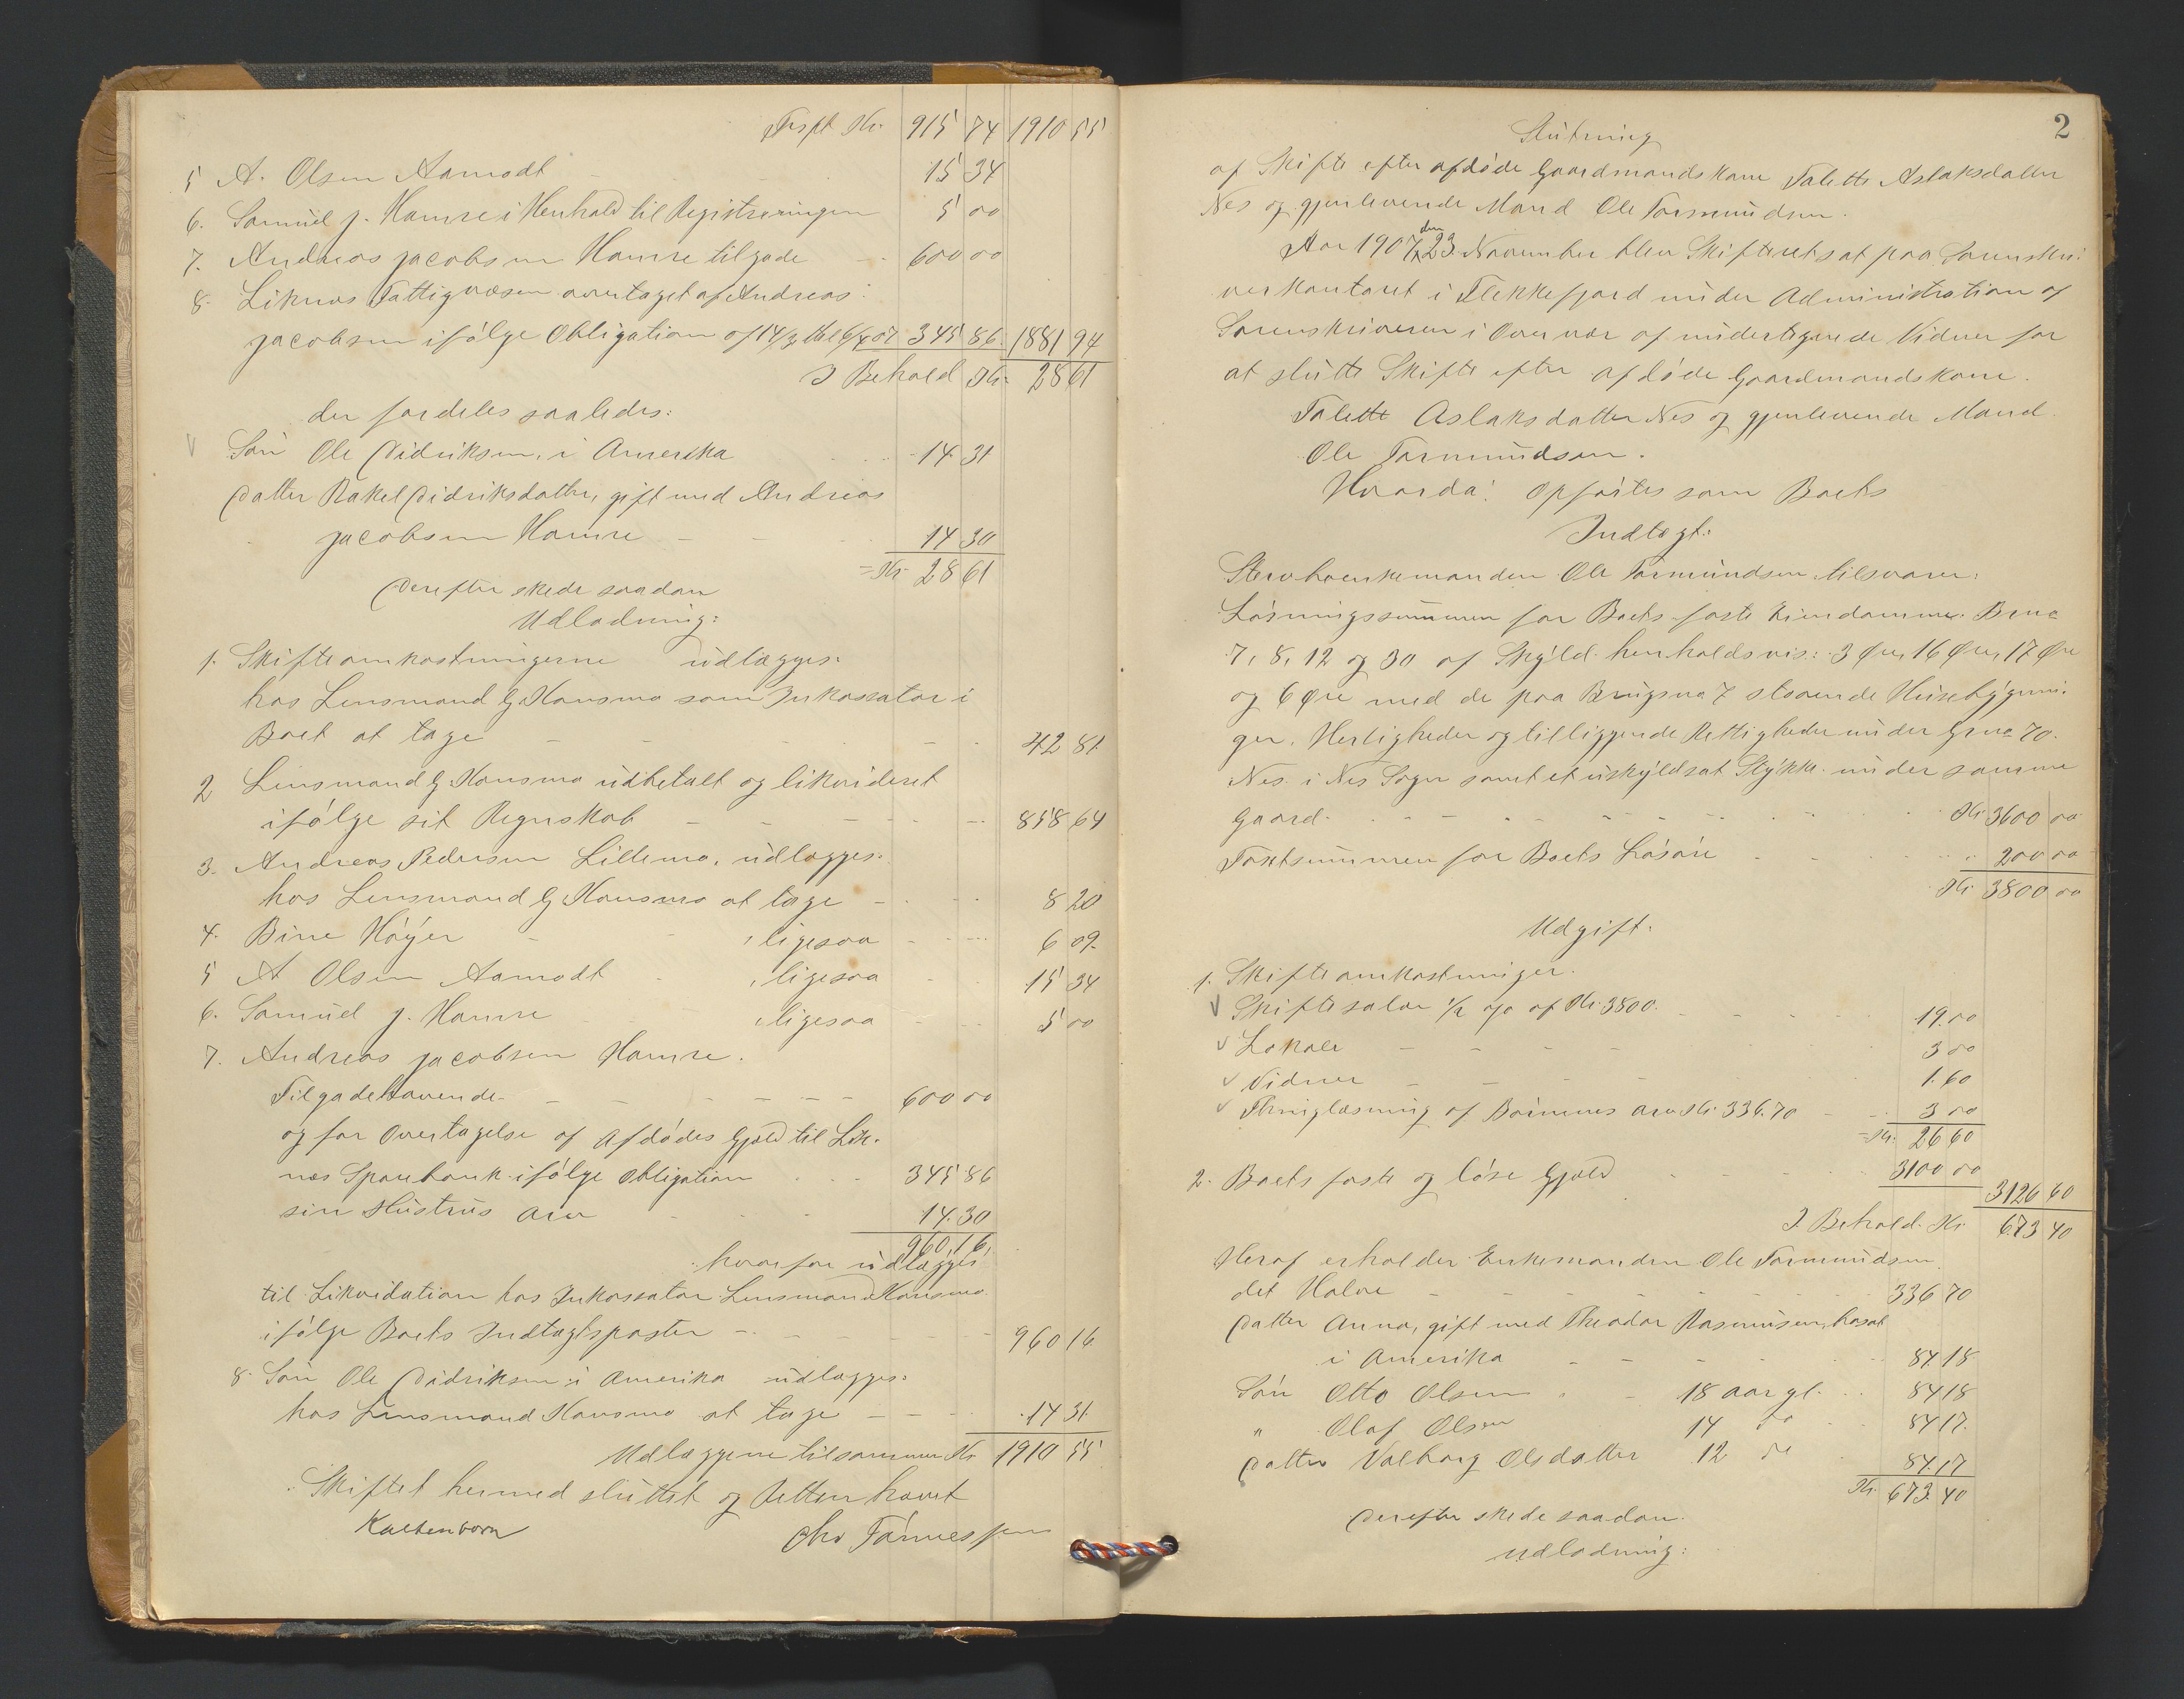 Trspt Kr. 915 74 1910 55
5 A. Olsen Aamodt 15 34
6. Samuel J. Hamre i Henhold til Registreringen 5 00
7. Andreas Jacobsen Hamre tilgode 600 00
8. Liknes Fattigvæsen overtaget af Andreas
Jacobsen ifølge Obligation af 345 86. 1881 94
I Behold Kr. 28 61
der fordeles saaledes:
Søn Ole Didriksen, i Amerika 14 31
Datter Rakel Didriksdatter, gift med Andreas
Jacobsen Hamre 14 30
= Kr. 28 61
Derefter skede saadan
Udlodning:
1. Skifteomkostningerne udlægges:
hos Lensmand G. Hansmo som Inkassator i
Boet at tage 42 81
2 Lensmand G. Hansmo udbetalt og likvideret
ifølge sit Regnskab 858 64
3. Andreas Pedersen Lillemo, udlægges:
hos Lensmand G Hansmo at tage 8 20
4. Bine Høyer , ligesaa 6 09
5 A Olsen Aamodt , ligesaa 15 34
6. Samuel J. Hamre , ligesaa 5 00
7. Andreas Jacobsen Hamre.
Tilgodehavende 600 00
og for Overtagelse af Afdødes Gjæld til Lik-
nes Sparebank ifølge Obligation 345 86
sin Hustrus Arv 14.30
960,16,
hvorfor udlægges
til Likvidation hos Inkassator Lensmand Hansmo
ifølge Boets Indtægtsposter 960 16
8. Søn Ole Didriksen i Amerika udlægges:
hos Lensmand Hansmo at tage 14 31
Udlæggene tilsammen Kr 1910 55
Skiftet hermed sluttet og Retten hævet
Kaltenborn Chr Tønnessen
2
Slutning
af Skifte efter afdøde Gaardmandskone Talette Aslaksdatter
Nes og gjenlevende Mand Ole Tormundsen.
Aar 1907, den 23. November blev Skifteret sat paa Sorenskri-
verkontoret i Flekkefjord under Administration af
Sorenskriveren i Overvær af undertegnede Vidner for
at slutte Skifte efter afdøde Gaardmandskone.
Talette Aslaksdatter Nes og gjenlevende Mand
Ole Tormundsen.
Hvorda: opførtes som Boets
Indtægt:
Stervboenkemanden Ole Tormundsen tilsvarer:
Løsningssummen for Boets faste Eiendomme. Bruo
7, 8, 12 og 30 af Skyld. henholdsvis: 3 Øre, 16 Øre, 17 Øre
og 6 Øre med de paa Brugsno 7 staaende Husebygnin-
ger, Herligheder og tilliggende Rettigheder under Grno 70.
Nes i Nes Sogn samt et uskyldsat Stykke under samme
Gaard. Kr. 3600 00
Taxtsummen for Boets Løsøre " 200 00
Kr. 3800 00
Udgift.
1. Skifteomkostninger.
Skiftesalær 1/2 o/o af Kr. 3800. 19.00
Lokale 3 00
Vidner 1.60
Thinglæsning af Børnenes Arv Kr. 336.70 3 00
= Kr. 26 60
2. Boets faste og løse Gjæld 3100 00 3126 60
I Behold Kr. 673 40
Heraf erholder Enkemanden Ole Tormundsen
det Halve 336 70
Datter Anna, gift med Theodor Rasmusen, bosat
i Amerika 84.18
Søn Otto Olsen 18 aar gl. 84 18
" Olaf Olsen 14 do 84 17.
Datter Valborg Olsdatter 12 do 84.17
Kr. 673.40
Derefter skede saadan.
Udlodning: